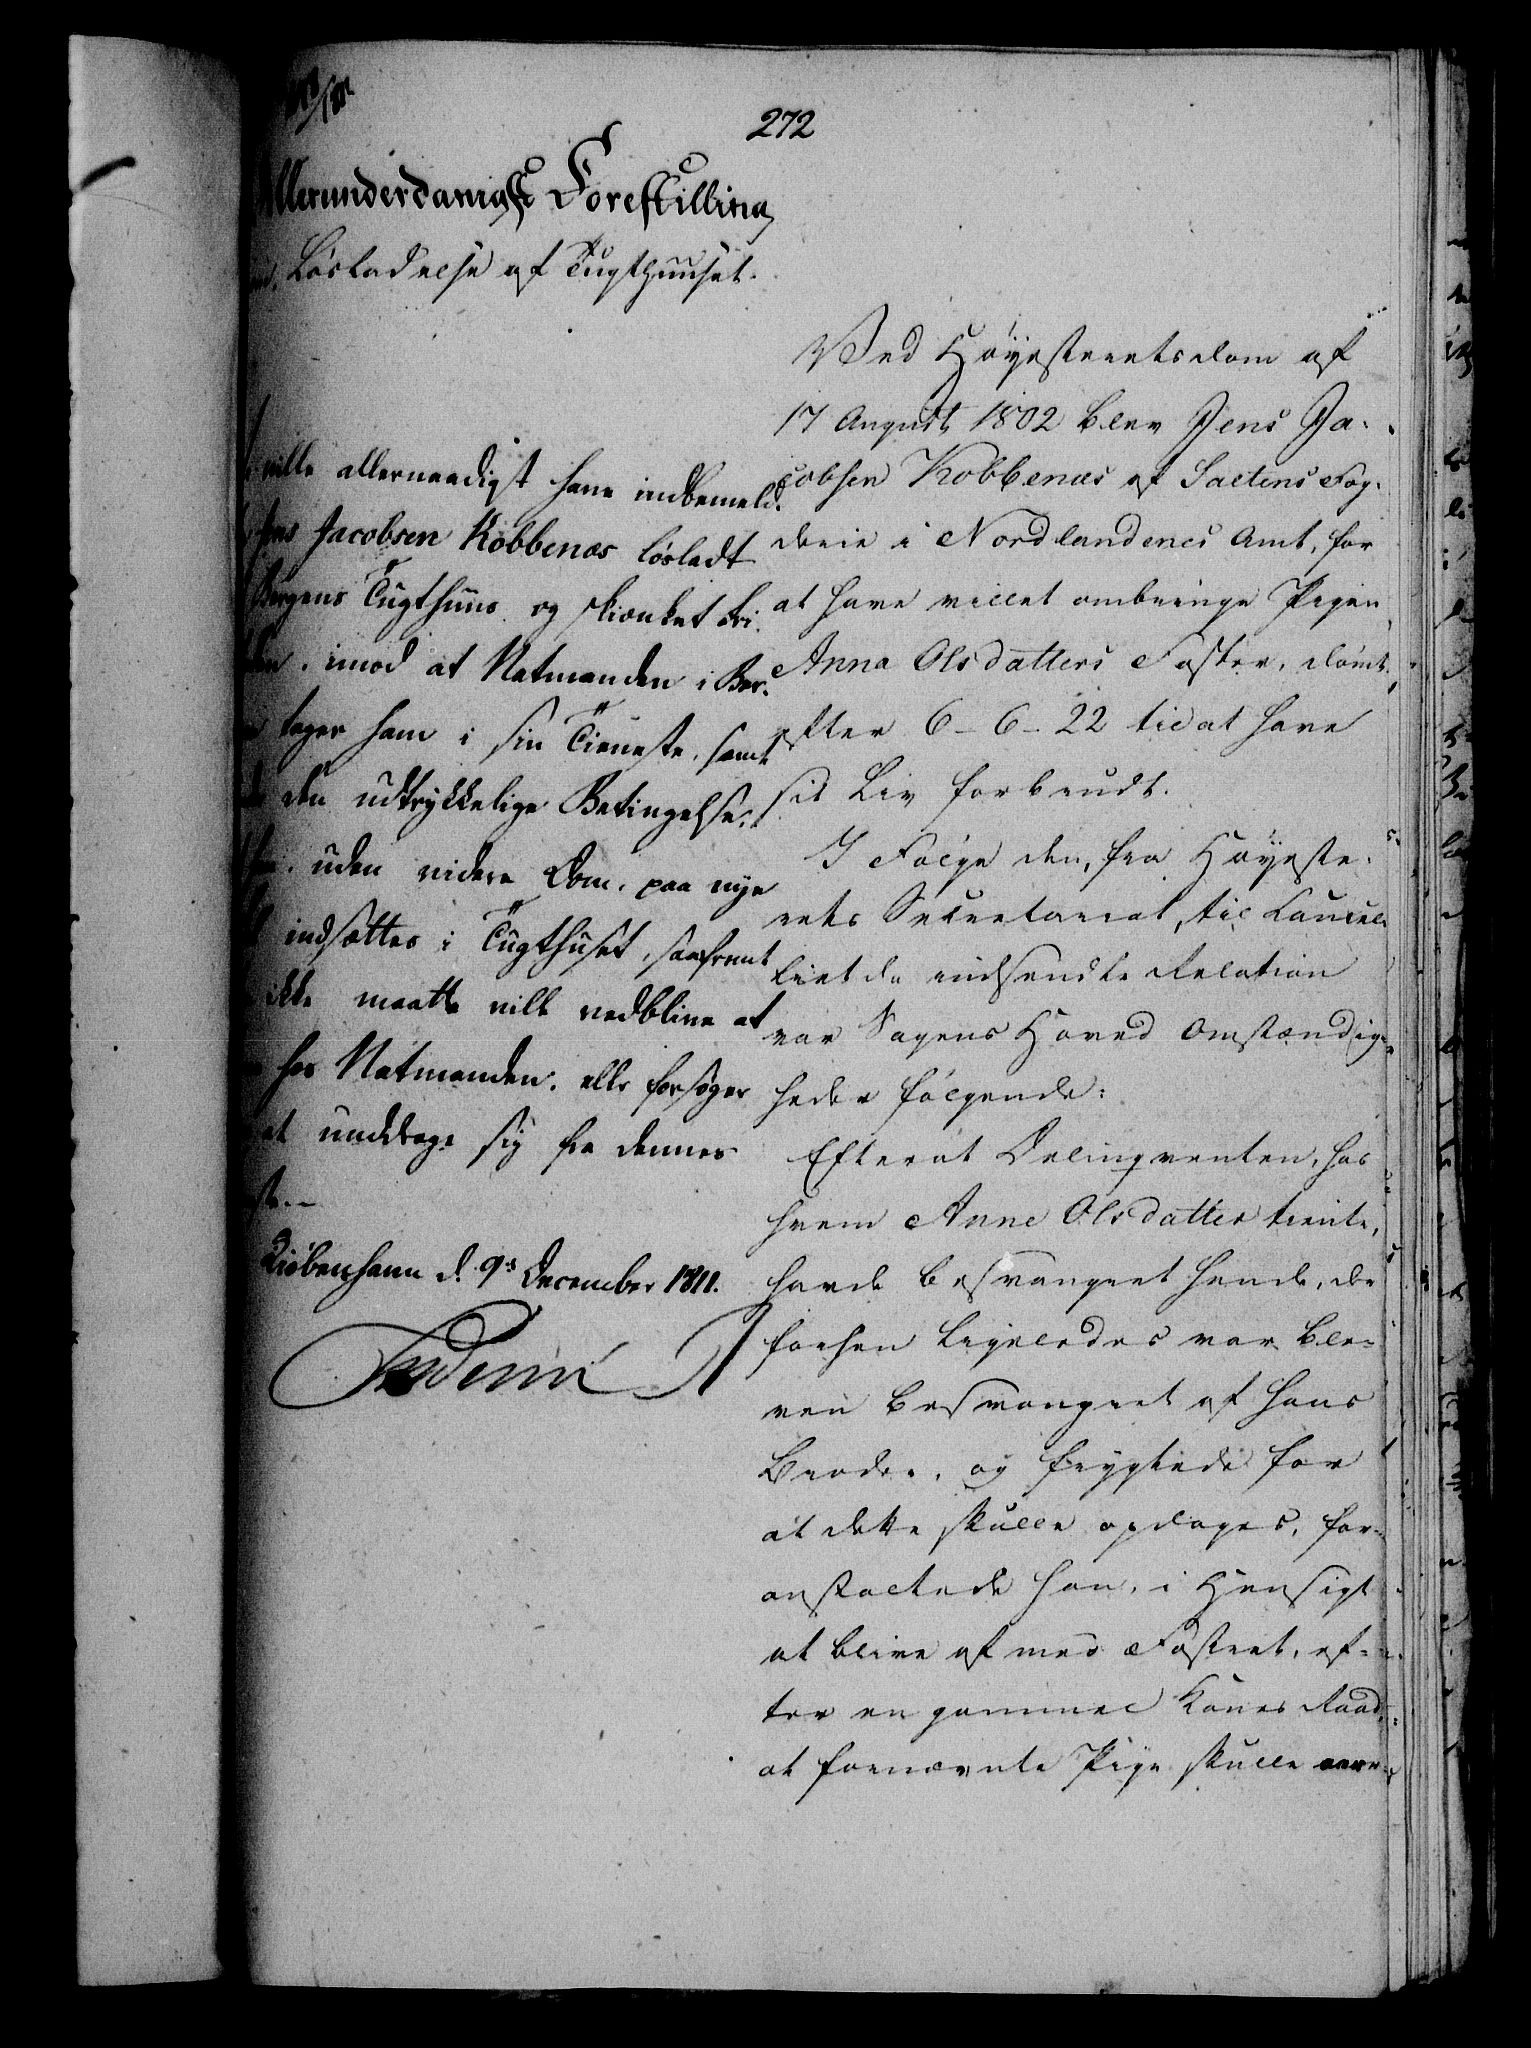 272
Allerunderdanigst Forestilling
Løsladelse af Tugthuuset.
ville allernaadigst have indbemeld.
Jens Jacobsen Kobbenæs løsladt
Bergens Tugthuus og skienket Fri
imod at Natmanden i Ber-
tager ham i sin Tieneste, samt
den udtrykkelige Betingelse, at
uden videre Dom, paa nye
indsættes i Tugthuset, saafremt
ikke maatte ville vedblive at
hos Natmanden, eller forsøger
at unddrage sig fra dennes
Kiøbenhavn d. 9s December 1811.
Frederik R
Ved Høyesteretsdom af
17 August 1802 blev Jens Ja-
cobsen Kobbenæs af Saltens Fog-
derie i Nordlandenes Amt, for
at have villet ombringe Pigen
Anna Olsdatters Foster, dømt
efter 6-6-22 til at have
sit Liv forbrudt.
I Følge den, fra Høyeste-
rets Secretariat, til Cancel-
liet da indsendte Relation
var Sagens Hoved Omstændig-
heder følgende:
Efterat Delinqventen, hos
hvem Anne Olsdatter tiente,
havde besvangret hende, der
forhen ligeledes var ble-
ven besvangret af hans
Broder, og frygtede for
at dette skulle opdages, for-
anstaltede han, i Hensigt
at blive af med Fosteret, ef-
ter en gammel Kones Raad,
at fornævnte Pige skulle aare-